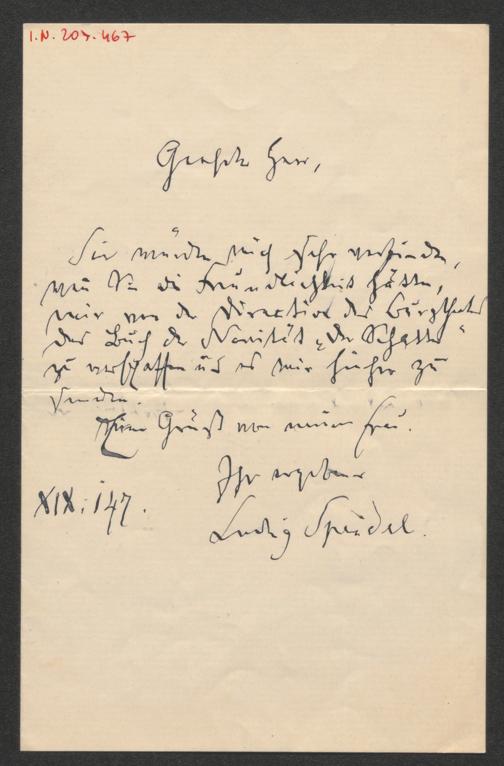 I.N. 207.467
Geehrter Herr,
Sie würden mich sehr verbinden,
wenn Sie die Freundlichkeit hätten,
mir von der Direction des Burgtheaters
das Buch der Novität „Der Schatten“
zu verschaffen und es mir hieher zu
senden.
Grüß von meiner Frau.
Ihr ergebener
XIX. 147.
Ludwig Speidel.